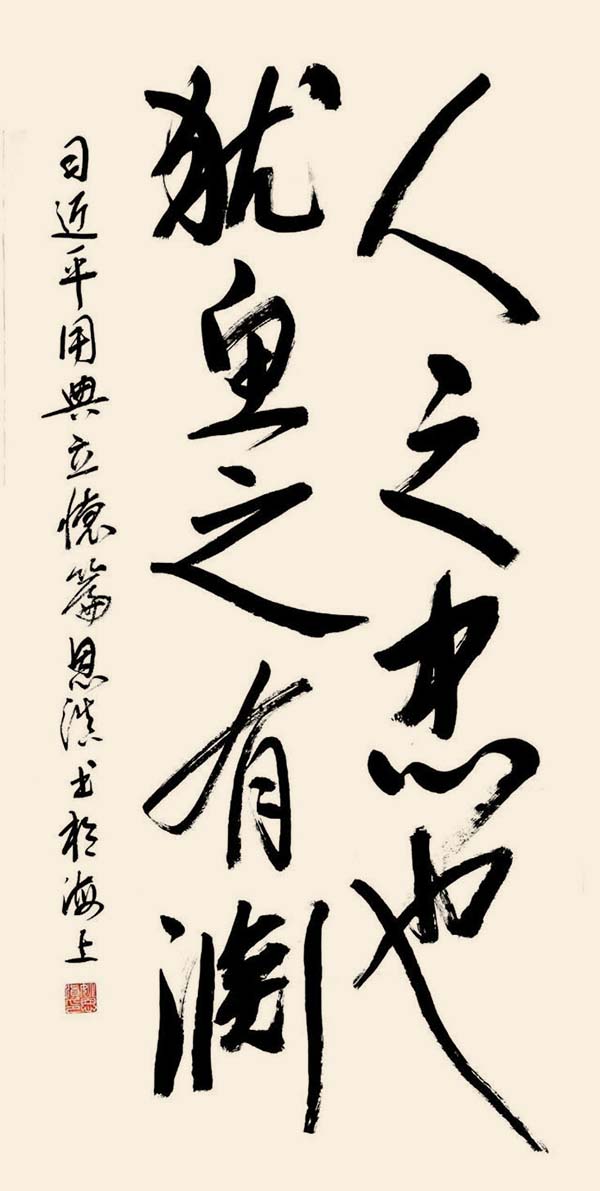 人之忠也
犹鱼之有渊
习近平用典立德篇恩滇书於海上